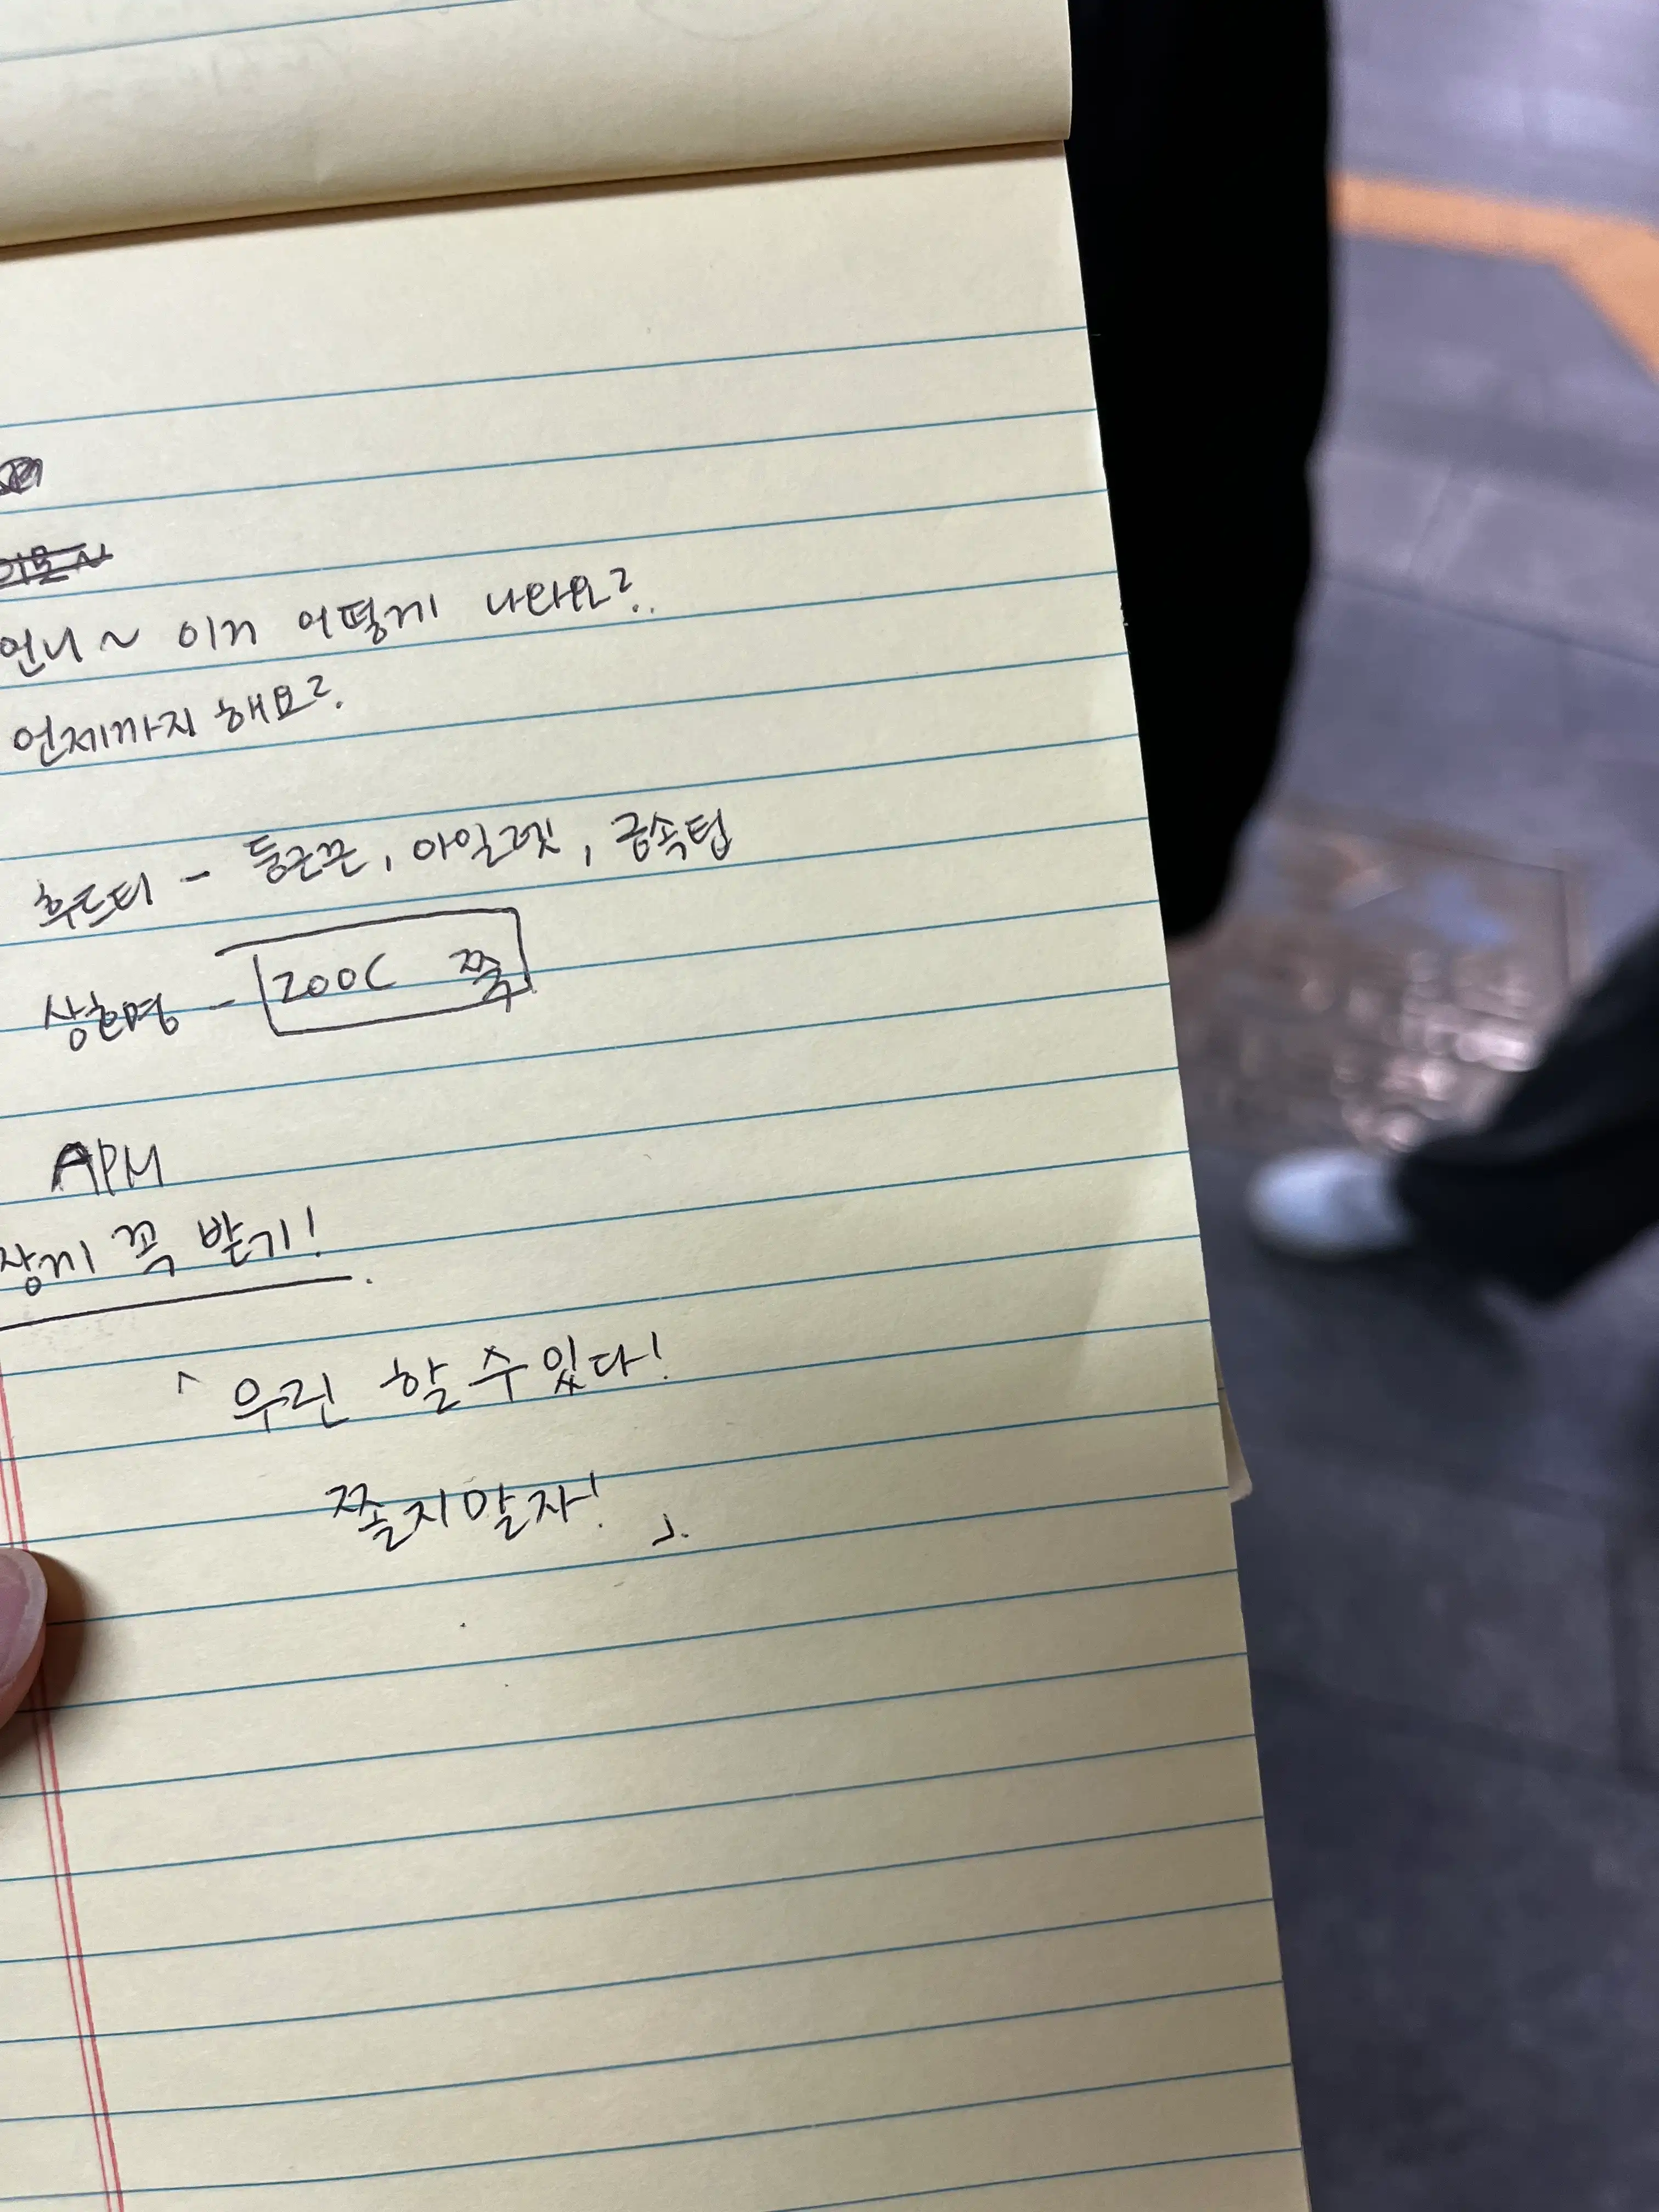 언니~ 이거 어떻게 나와요?
언제까지 해요?
후드티 - 둥근끈, 아일렛, 금속팁
상호명 - ZOOC 쭉
APM
장끼 꼭 받기!
「우린 할 수 있다!
쫄지말자!」